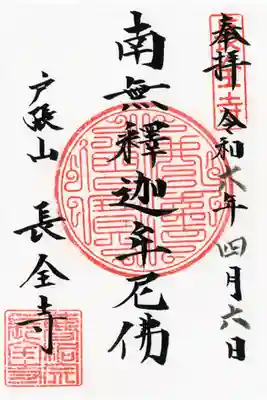 奉拝 令和六年 四月六日
南無釋迦牟尼佛
戸張山 長全寺